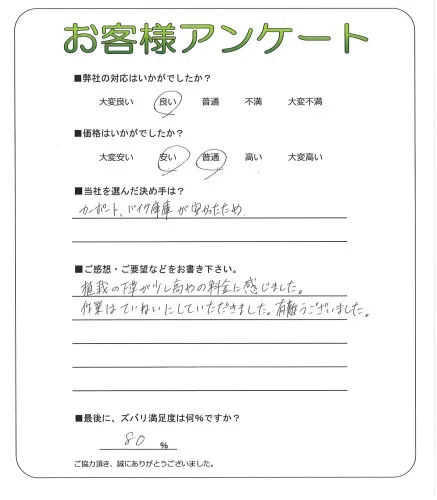 お客様アンケート
■弊社の対応はいかがでしたか？
大変良い 良い 普通 不満 大変不満
■価格はいかがでしたか？
大変安い 安い 普通 高い 大変高い
■当社を選んだ決め手は？
カーポート、バイク庫が安かったため
■ご感想・ご要望などをお書き下さい。
植栽の下草が少し高めの料金に感じました。
作業はていねいにしていただきました。有難うございました。
■最後に、ズバリ満足度は何％ですか？
80 %
ご協力頂き、誠にありがとうございました。